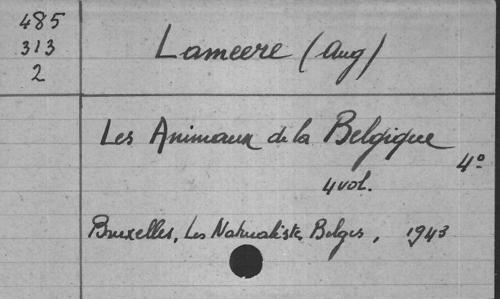 485
313
2
Lameere (Aug)
Les Animaux de la Belgique
4°
4 vol.
Bruxelles, Les Naturalistes Belges, 1943